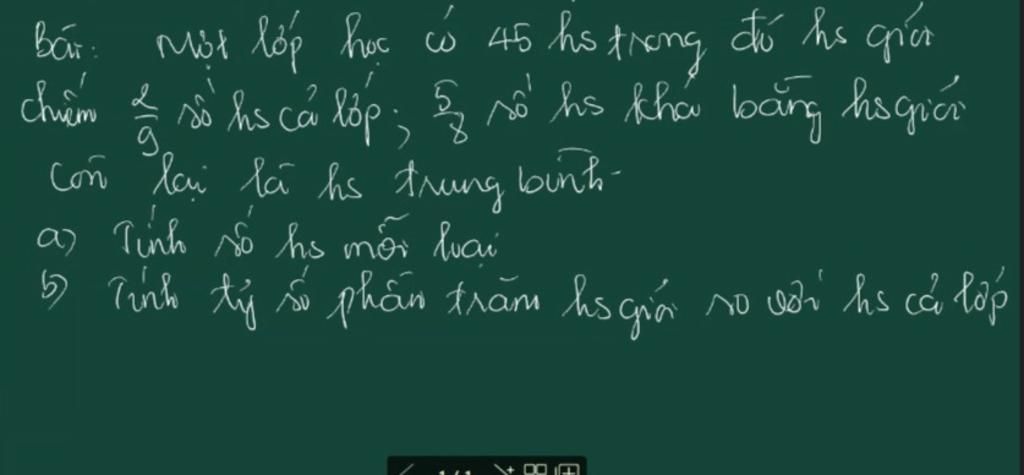 Bài: Một lớp học có 45 hs trong đó hs giỏi
chiếm 2/9 số hs cả lớp; 5/8 số hs khá bằng hs giỏi
còn lại là hs trung bình
a) Tính số hs mỗi loại
b) Tính tỷ số phần trăm hs giỏi so với hs cả lớp
1/1